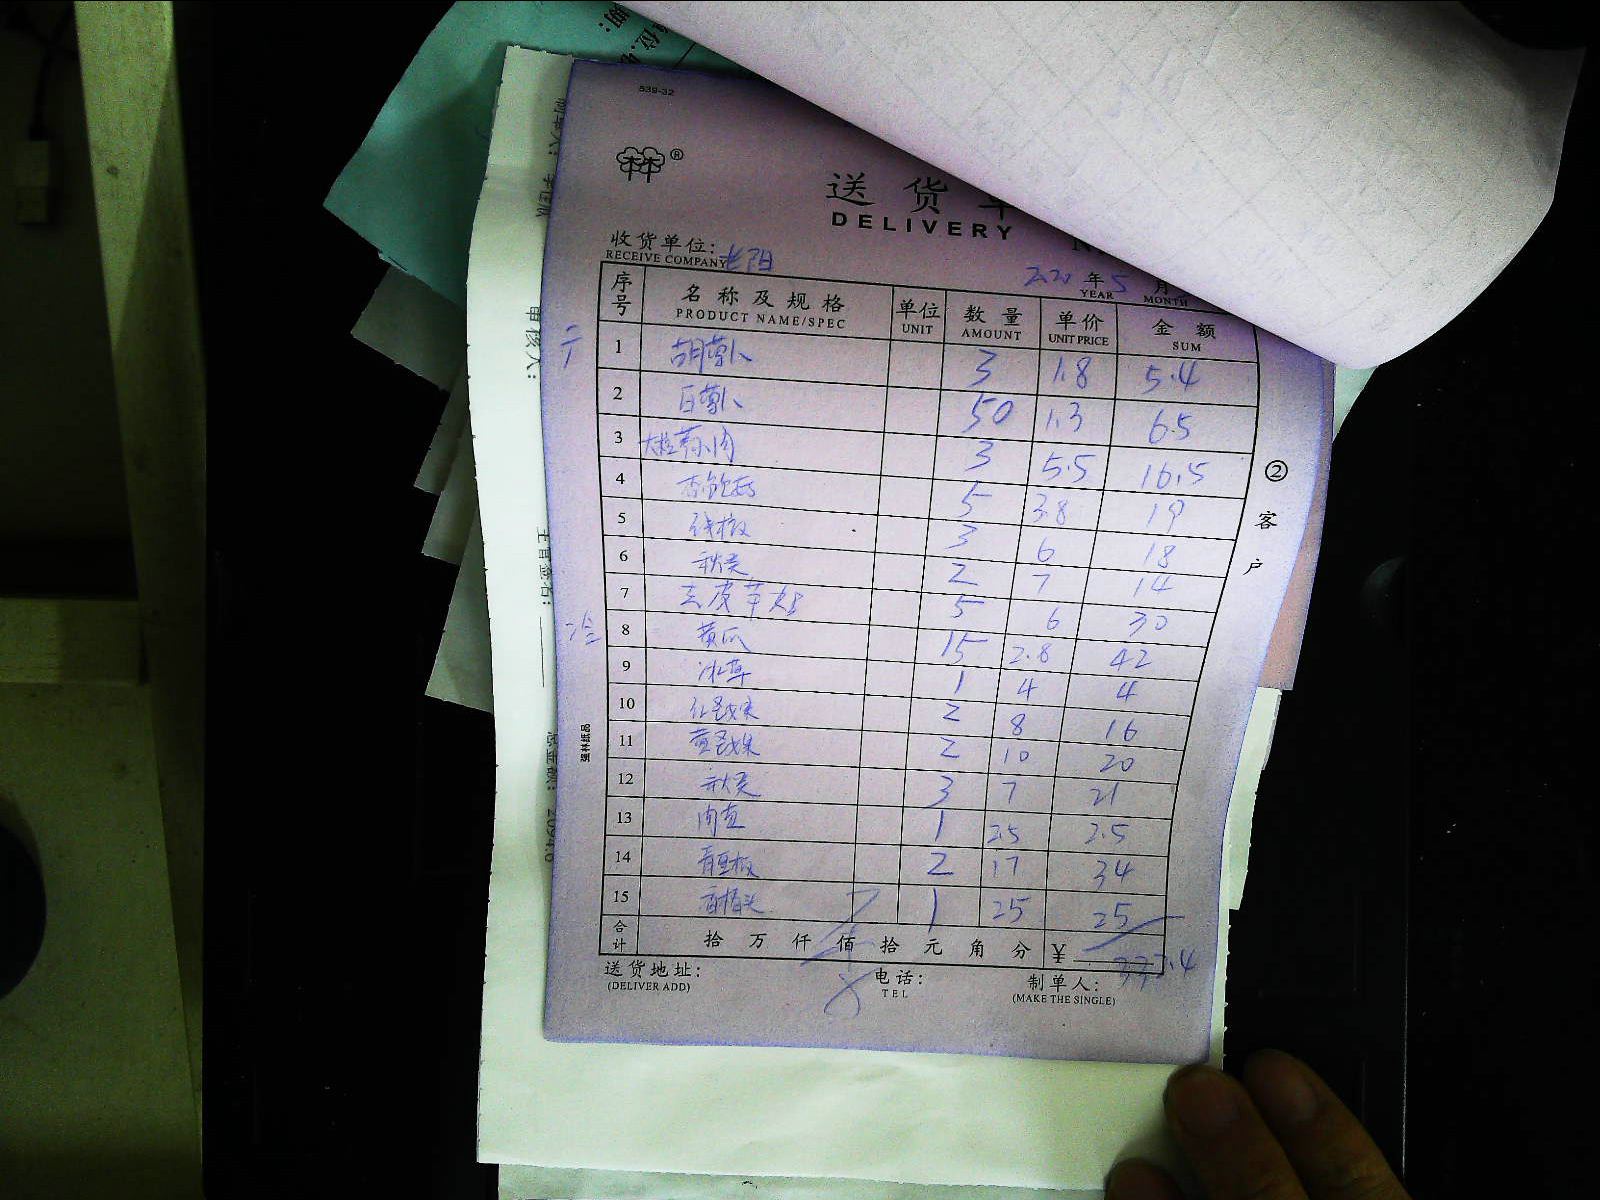 539-32
送货单
DELIVERY
收货单位:
RECEIVE COMPANY
2020年5月
YEAR MONTH
序号 名称及规格 单位 数量 单价 金额
PRODUCT NAME/SPEC UNIT AMOUNT UNIT PRICE SUM
1 胡萝卜 3 1.8 5.4
2 白萝卜 50 1.3 65
3 3 5.5 16.5
4 杏鲍菇 5 3.8 19
5 线椒 3 6 18
6 秋葵 2 7 14
7 去皮芋头 5 6 30
冷
8 黄瓜 15 2.8 42
9 冰草 1 4 4
10 红圣女果 2 8 16
11 黄圣女果 2 10 20
12 秋葵 3 7 21
13 1 2.5 2.5
14 2 17 34
15 1 25 25
合计 拾万仟佰拾元角分 ¥ 337.4
送货地址:
(DELIVER ADD)
电话:
TEL
制单人:
(MAKE THE SINGLE)
②客户
强林纸品
审核人:
主管签名:
总金额: 2094.6